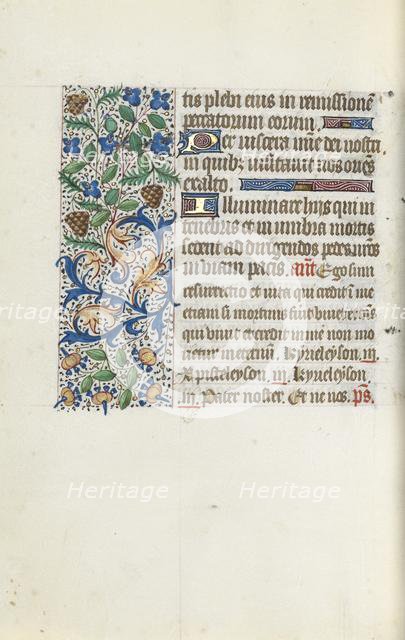 tis plebi eius in remissionē
peccatorum eorum.
Per viscera mie dei nostri
in quibꝫ visitauit nos oriēs
ex alto.
Illuminare hijs qui in
tenebris et in umbra mortis
sedent ad dirigendos pedes nr̄os
in viam pacis. añt Ego sum
resurrectio et vita qui credit ī me
etiam si mortuus fuerit viuet et ōis
qui viuit et credit in me non mo
rietur in eternū. Kyrieleyson. iij.
Xpisteleyson. iij. Kyrieleyson
iij. Pater noster. Et ne nos. ps̄.
Heritage
Heritage
Heritage
Heritage